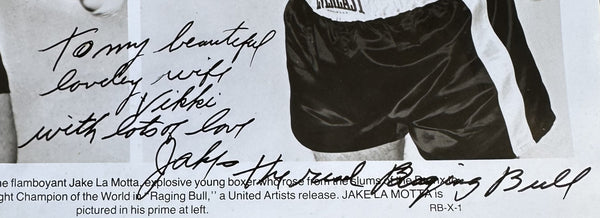 EVERLAST
To my beautiful
lovely wife
Vikki
with lots of love
Jake the real Raging Bull
he flamboyant Jake La Motta, explosive young boxer who rose from the slums
ght Champion of the World in "Raging Bull," a United Artists release. JAKE LA MOTTA is
pictured in his prime at left.
RB-X-1